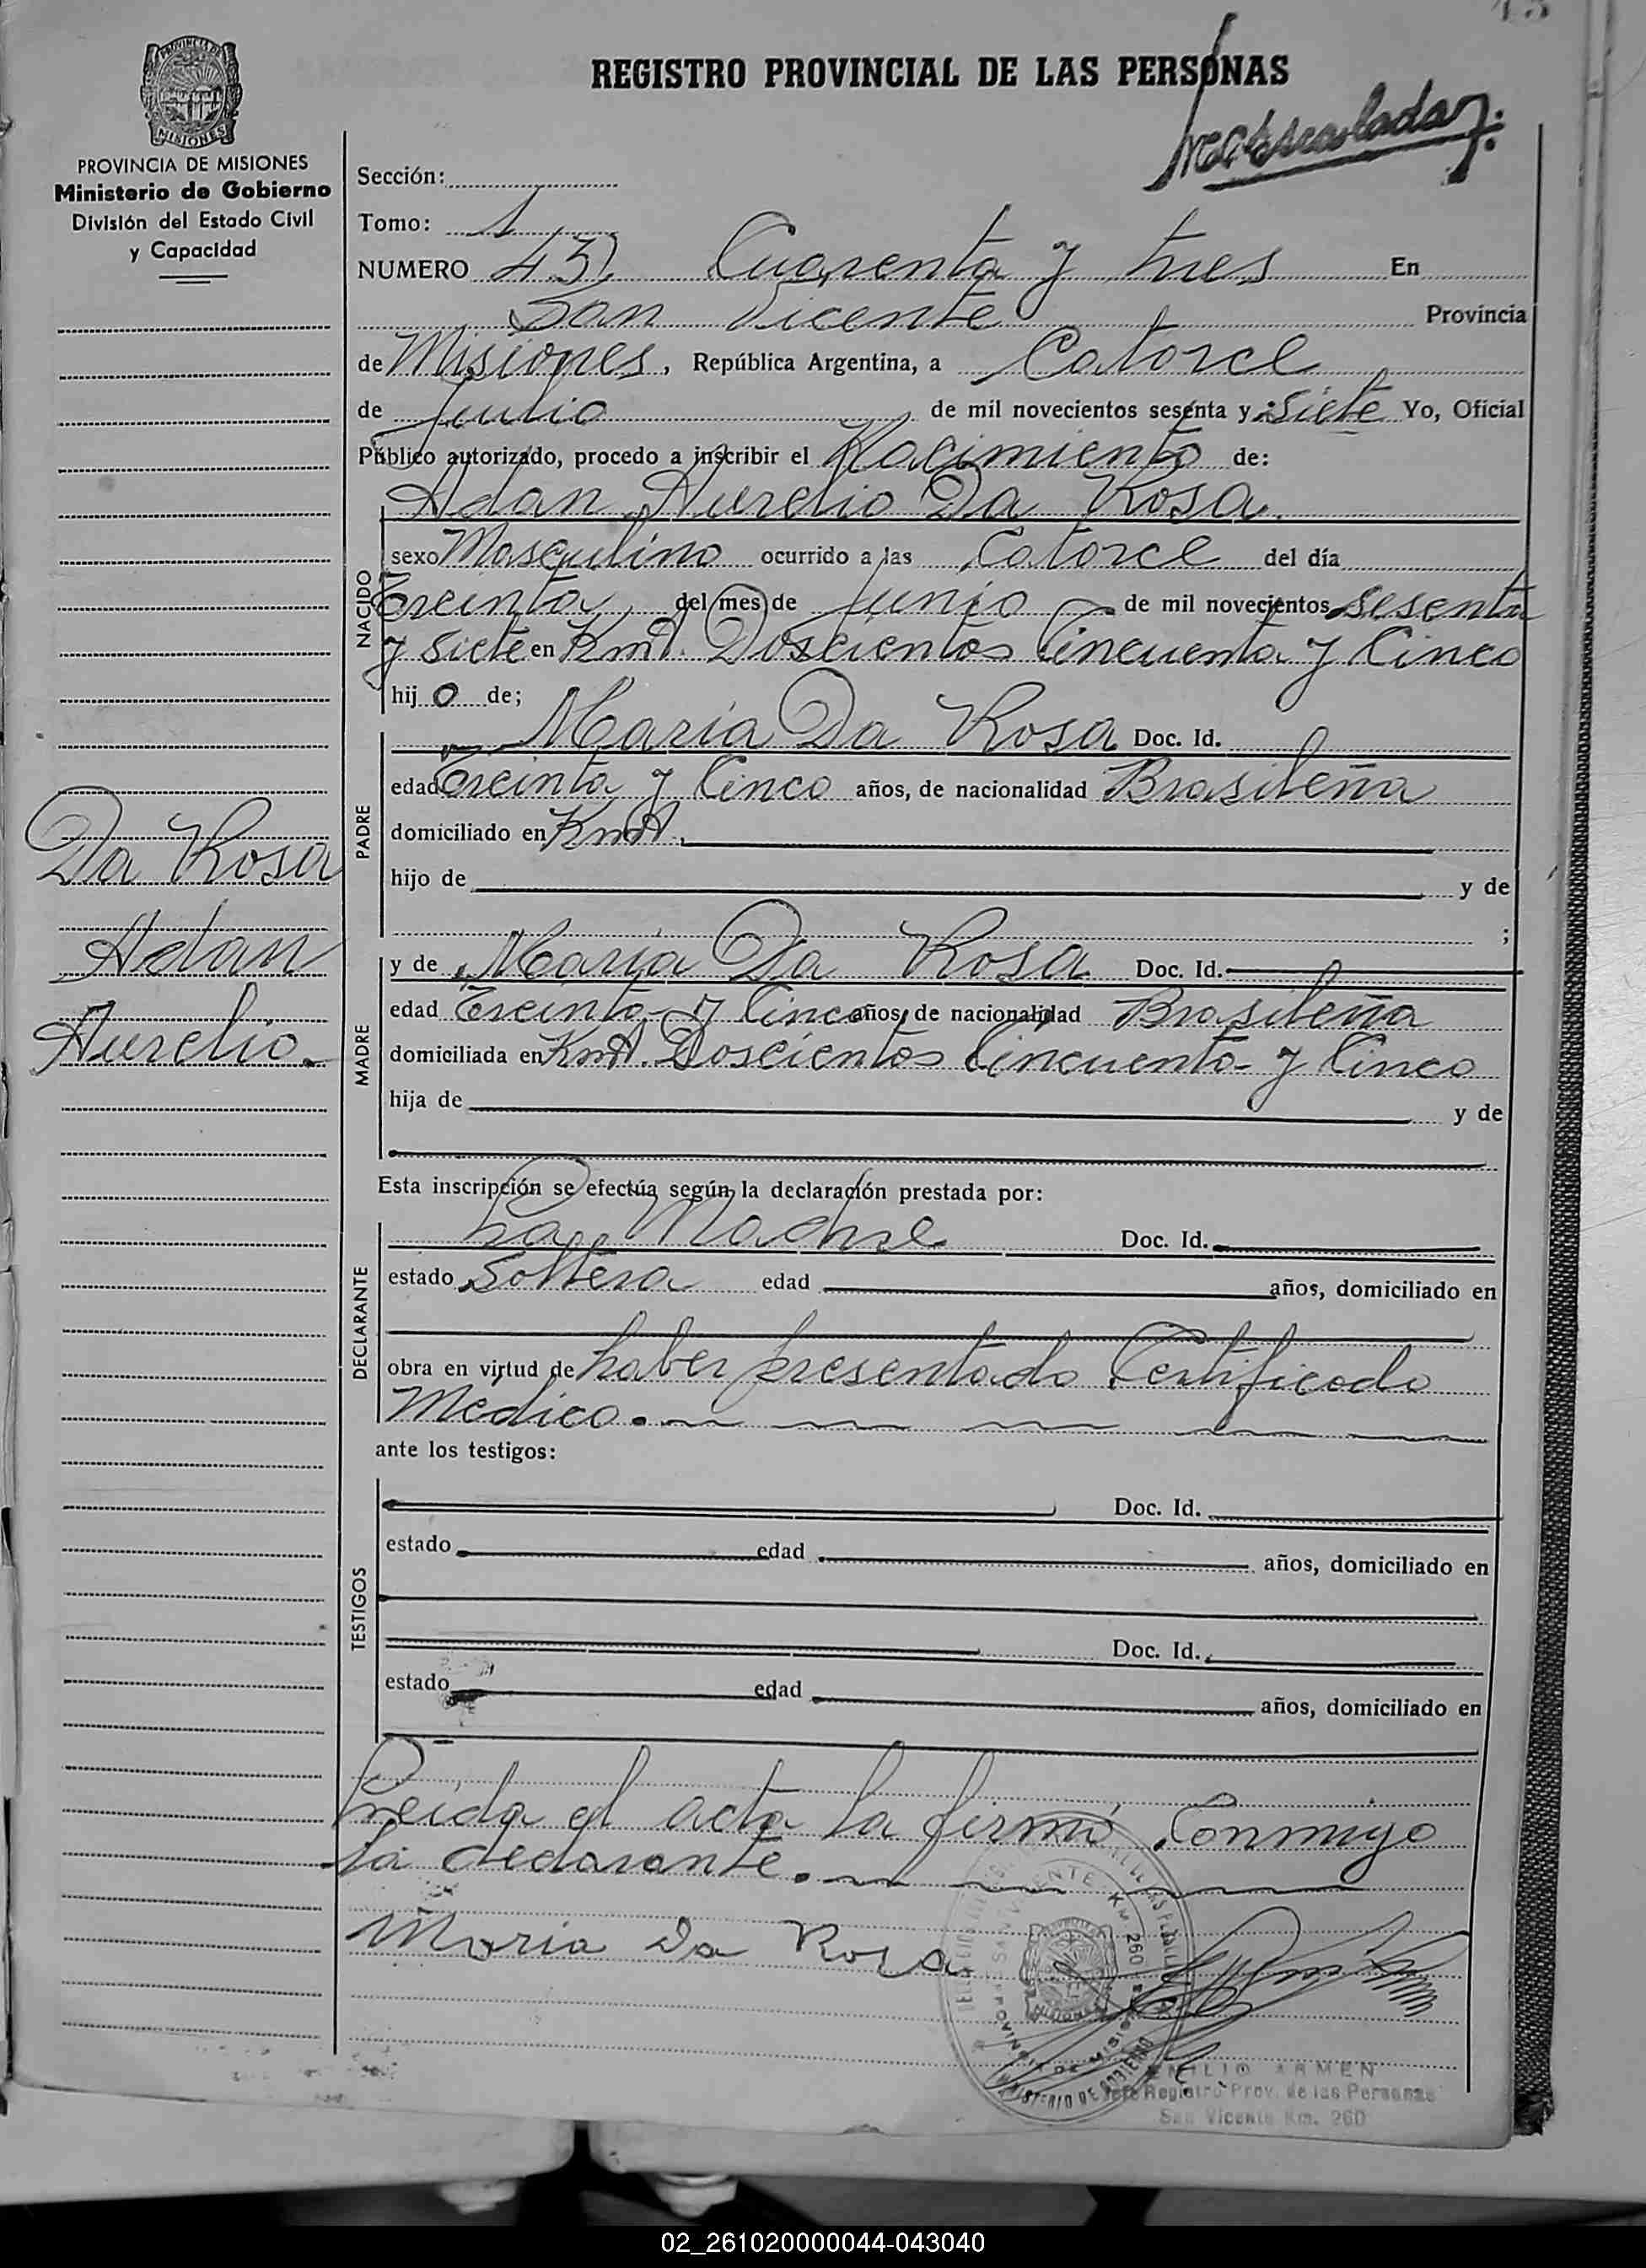 REGISTRO PROVINCIAL DE LAS PERSONAS
PROVINCIA DE MISIONES
Ministerio de Gobierno
División del Estado Civil
y Capacidad
Da Rosa
Adan
Aurelio.
Sección:
Tomo: 1
NUMERO 43) Cuarenta y tres En
San Vicente Provincia
de Misiones, República Argentina, a Catorce
de Julio de mil novecientos sesenta y siete Yo, Oficial
Público autorizado, procedo a inscribir el Nacimiento de:
Adan Aurelio Da Rosa.
NACIDO
sexo Masculino ocurrido a las Catorce del día
Treinta del mes de Junio de mil novecientos sesenta
y siete en Kmt. Doscientos Cincuenta y Cinco
hij o de;
PADRE
Maria Da Rosa Doc. Id.
edad Treinta y Cinco años, de nacionalidad Brasileña
domiciliado en Kmt.
hijo de y de
;
MADRE
y de Maria Da Rosa Doc. Id.
edad Treinta y Cinco años, de nacionalidad Brasileña
domiciliada en Kmt. Doscientos Cincuenta y Cinco
hija de y de
Esta inscripción se efectúa según la declaración prestada por:
DECLARANTE
La Madre Doc. Id.
estado Soltera edad años, domiciliado en
obra en virtud de haber presentado Certificado
Medico.
ante los testigos:
TESTIGOS
Doc. Id.
estado edad años, domiciliado en
Doc. Id.
estado edad años, domiciliado en
Leida el acta la firmó Conmigo
la declarante.
Maria Da Rosa
SAN VICENTE KM 260
PROVINCIA DE MISIONES
MINISTERIO DE GOBIERNO
EMILIO ARMEN
Jefe Registro Prov. de las Personas
San Vicente Km. 260
02_261020000044-043040